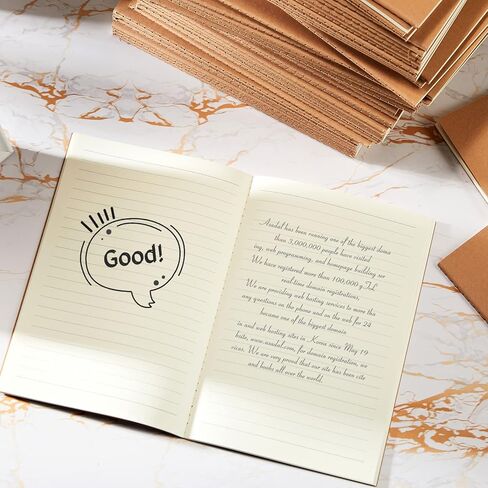 Good!
Asadal has been running one of the biggest doma
than 3,000,000 people have visited
ing, web programming, and homepage building ser
We have registered more than 100,000 g.TuL
real-time domain registrations,
We are providing web hosting services to more tha
any questions on the phone and on the web for 24
became one of the biggest domain
in and web hosting sites in Korea since May 19
bsite, www.asadal.com, for domain registration, we
vices. We are very proud that our site has been cite
and books all over the world.